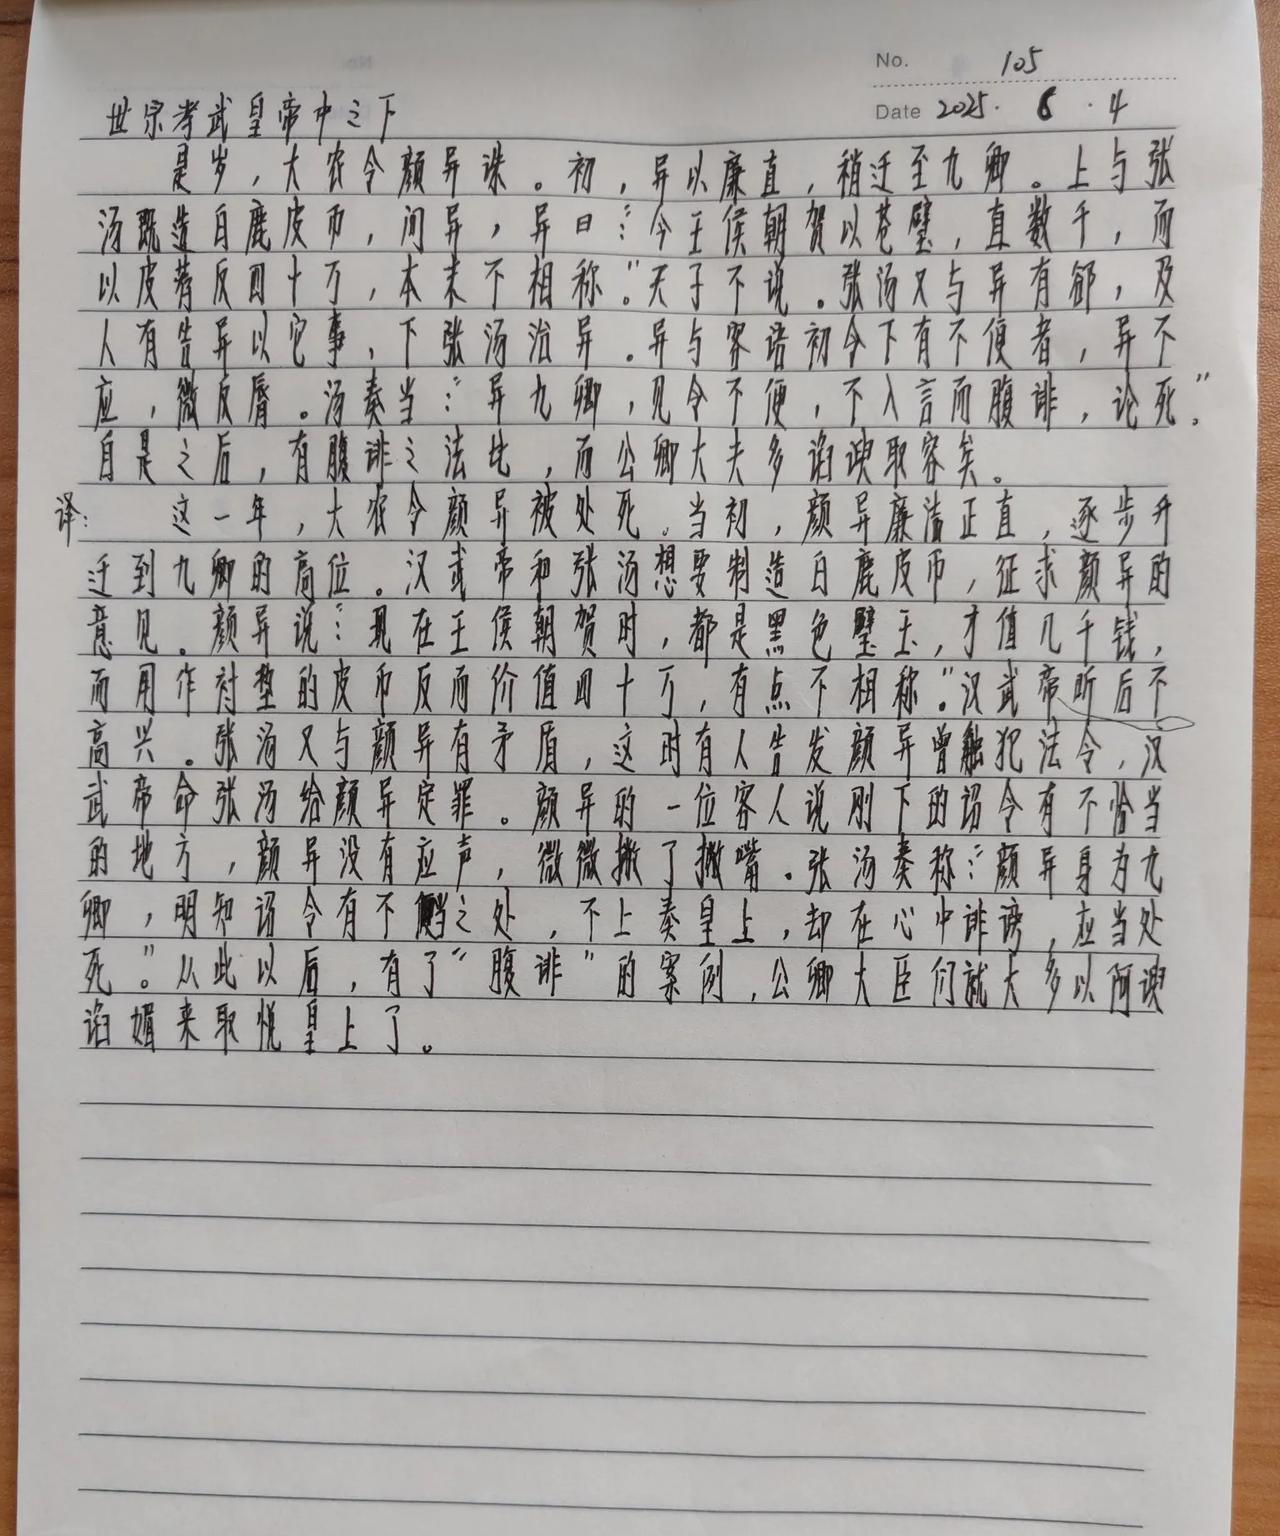 No. 105
Date 2025. 6 . 4
世宗孝武皇帝中之下
是岁，大农令颜异诛。初，异以廉直，稍迁至九卿。上与张
汤既造白鹿皮币，问异，异曰：“今王侯朝贺以苍璧，直数千，而
以皮荐反四十万，本末不相称。”天子不说。张汤又与异有郤，及
人有告异以它事，下张汤治异。异与客语初令下有不便者，异不
应，微反唇。汤奏当：“异九卿，见令不便，不入言而腹诽，论死。”
自是之后，有腹诽之法比，而公卿大夫多谄谀取容矣。
译： 这一年，大农令颜异被处死。当初，颜异廉洁正直，逐步升
迁到九卿的高位。汉武帝和张汤想要制造白鹿皮币，征求颜异的
意见。颜异说：“现在王侯朝贺时，都是黑色璧玉，才值几千钱，
而用作衬垫的皮币反而价值四十万，有点不相称。”汉武帝听后不
高兴。张汤又与颜异有矛盾，这时有人告发颜异曾触犯法令，汉
武帝命张汤给颜异定罪。颜异的一位客人说刚下的诏令有不恰当
的地方，颜异没有应声，微微撇了撇嘴。张汤奏称：“颜异身为九
卿，明知诏令有不当之处，不上奏皇上，却在心中诽谤，应当处
死。”从此以后，有了“腹诽”的案例，公卿大臣们就大多以阿谀
谄媚来取悦皇上了。